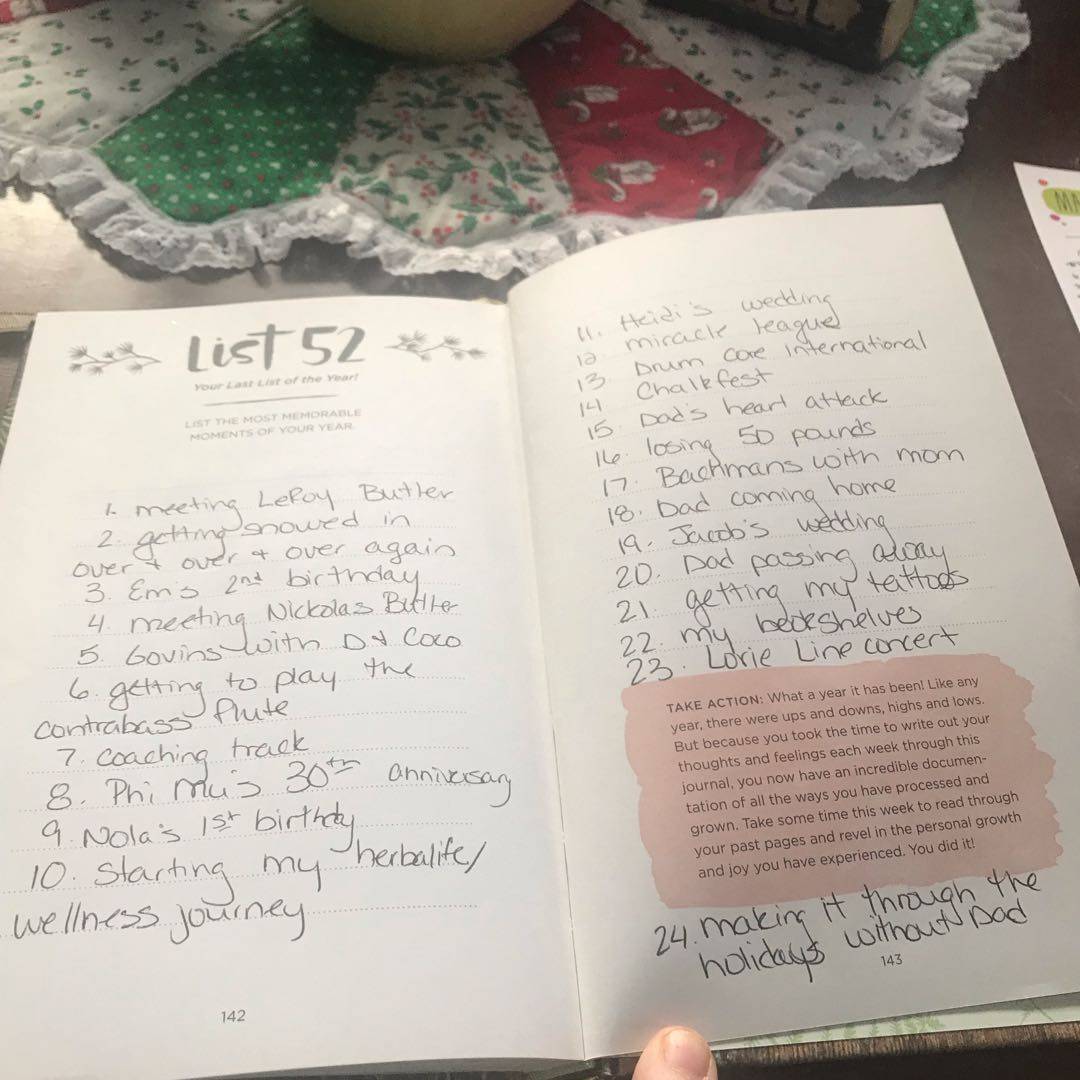 List 52
Your Last List of the Year!
LIST THE MOST MEMORABLE
MOMENTS OF YOUR YEAR.
1. meeting LeRoy Butler
2. getting snowed in
over & over & over again
3. Em's 2nd birthday
4. meeting Nickolas Butler
5. Govins with D & Coco
6. getting to play the
contrabass flute
7. coaching track
8. Phi Mu's 30th anniversary
9. Nola's 1st birthday
10. starting my herbalife/
wellness journey
142
11. Heidi's wedding
12 miracle league
13. Drum Core International
14 Chalkfest
15. Dad's heart attack
16. losing 50 pounds
17. Bachmans with mom
18. Dad coming home
19. Jacob's wedding
20. Dad passing away
21 getting my tattoos
22. my bookshelves
23. Lorie Line concert
TAKE ACTION: What a year it has been! Like any
year, there were ups and downs, highs and lows.
But because you took the time to write out your
thoughts and feelings each week through this
journal, you now have an incredible documen-
tation of all the ways you have processed and
grown. Take some time this week to read through
your past pages and revel in the personal growth
and joy you have experienced. You did it!
24. making it through the
holidays without Dad
143